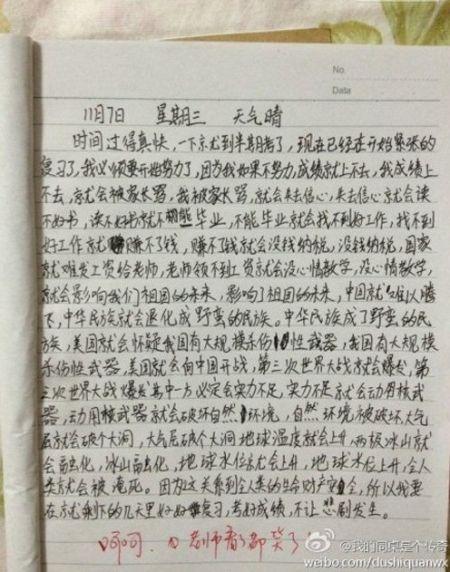 No.
Data
11月7日 星期三 天气晴
时间过得真快,一下就到半期考了,现在已经在开始紧张的
复习了,我必须要开始努力了,因为我如果不努力,成绩就上不去,我成绩上
不去,就会被家长骂,我被家长骂,就会失去信心,失去信心就会读
不好书,读不好书就不能毕业,不能毕业就会找不到好工作,找不到
好工作就赚不了钱,赚不了钱就会没钱纳税,没钱纳税,国家
就难发工资给老师,老师领不到工资就会没心情教学,没心情教学,
就会影响我们祖国的未来,影响了祖国的未来,中国就难以腾
飞,中华民族就会退化成野蛮的民族。中华民族成了野蛮的民
族,美国就会怀疑我国有大规模杀伤性武器,我国有大规模
杀伤性武器,美国就会向中国开战,第三次世界大战就会爆发,第
三次世界大战爆发其中一方必定会实力不足,实力不足就会动用核武
器,动用核武器就会破坏自然环境,自然环境被破坏大气
层就会破个大洞,大气层破个大洞地球温度就会上升,两极冰山就
会融化,冰山融化,地球水位就会上升,地球水位上升,全人
类就会被淹死。因为这关系到全人类的生命财产安全,所以我要
在就剩下的几天里好好复习,考好成绩,不让悲剧发生。
呵呵.老师看了都笑了
@我的同桌是个传奇
weibo.com/dushiquanwx